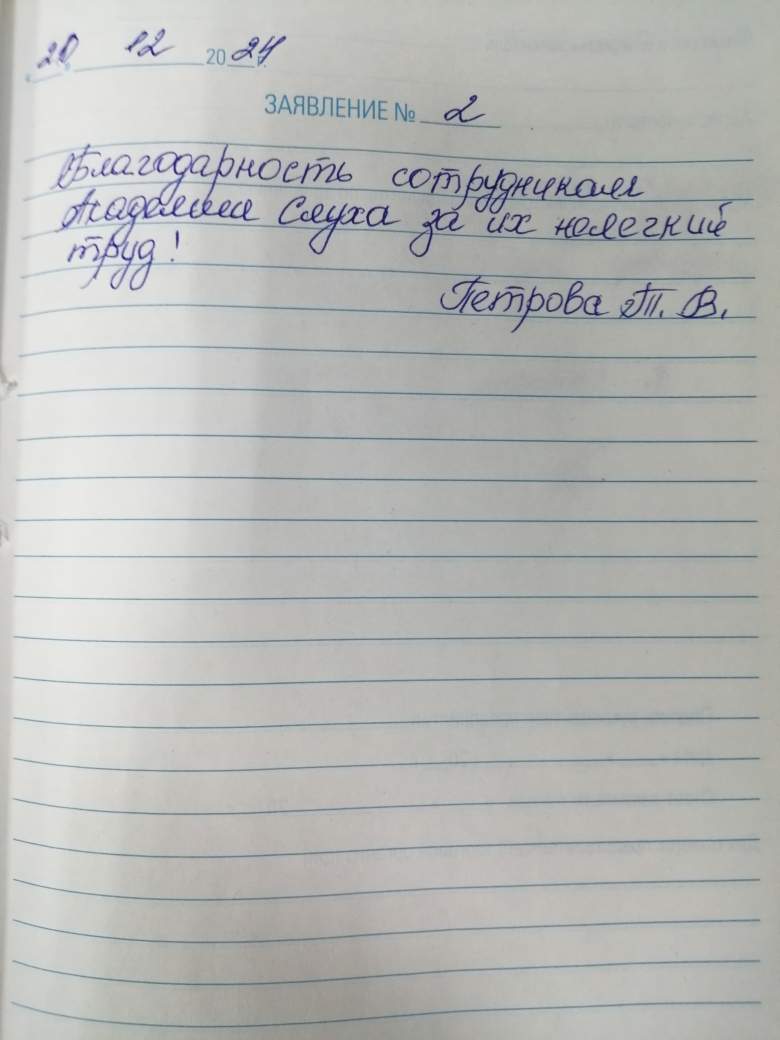 20 12 2024
ЗАЯВЛЕНИЕ № 2
Благодарность сотрудникам
Академии Слуха за их нелегкий
труд!
Петрова Т. В.